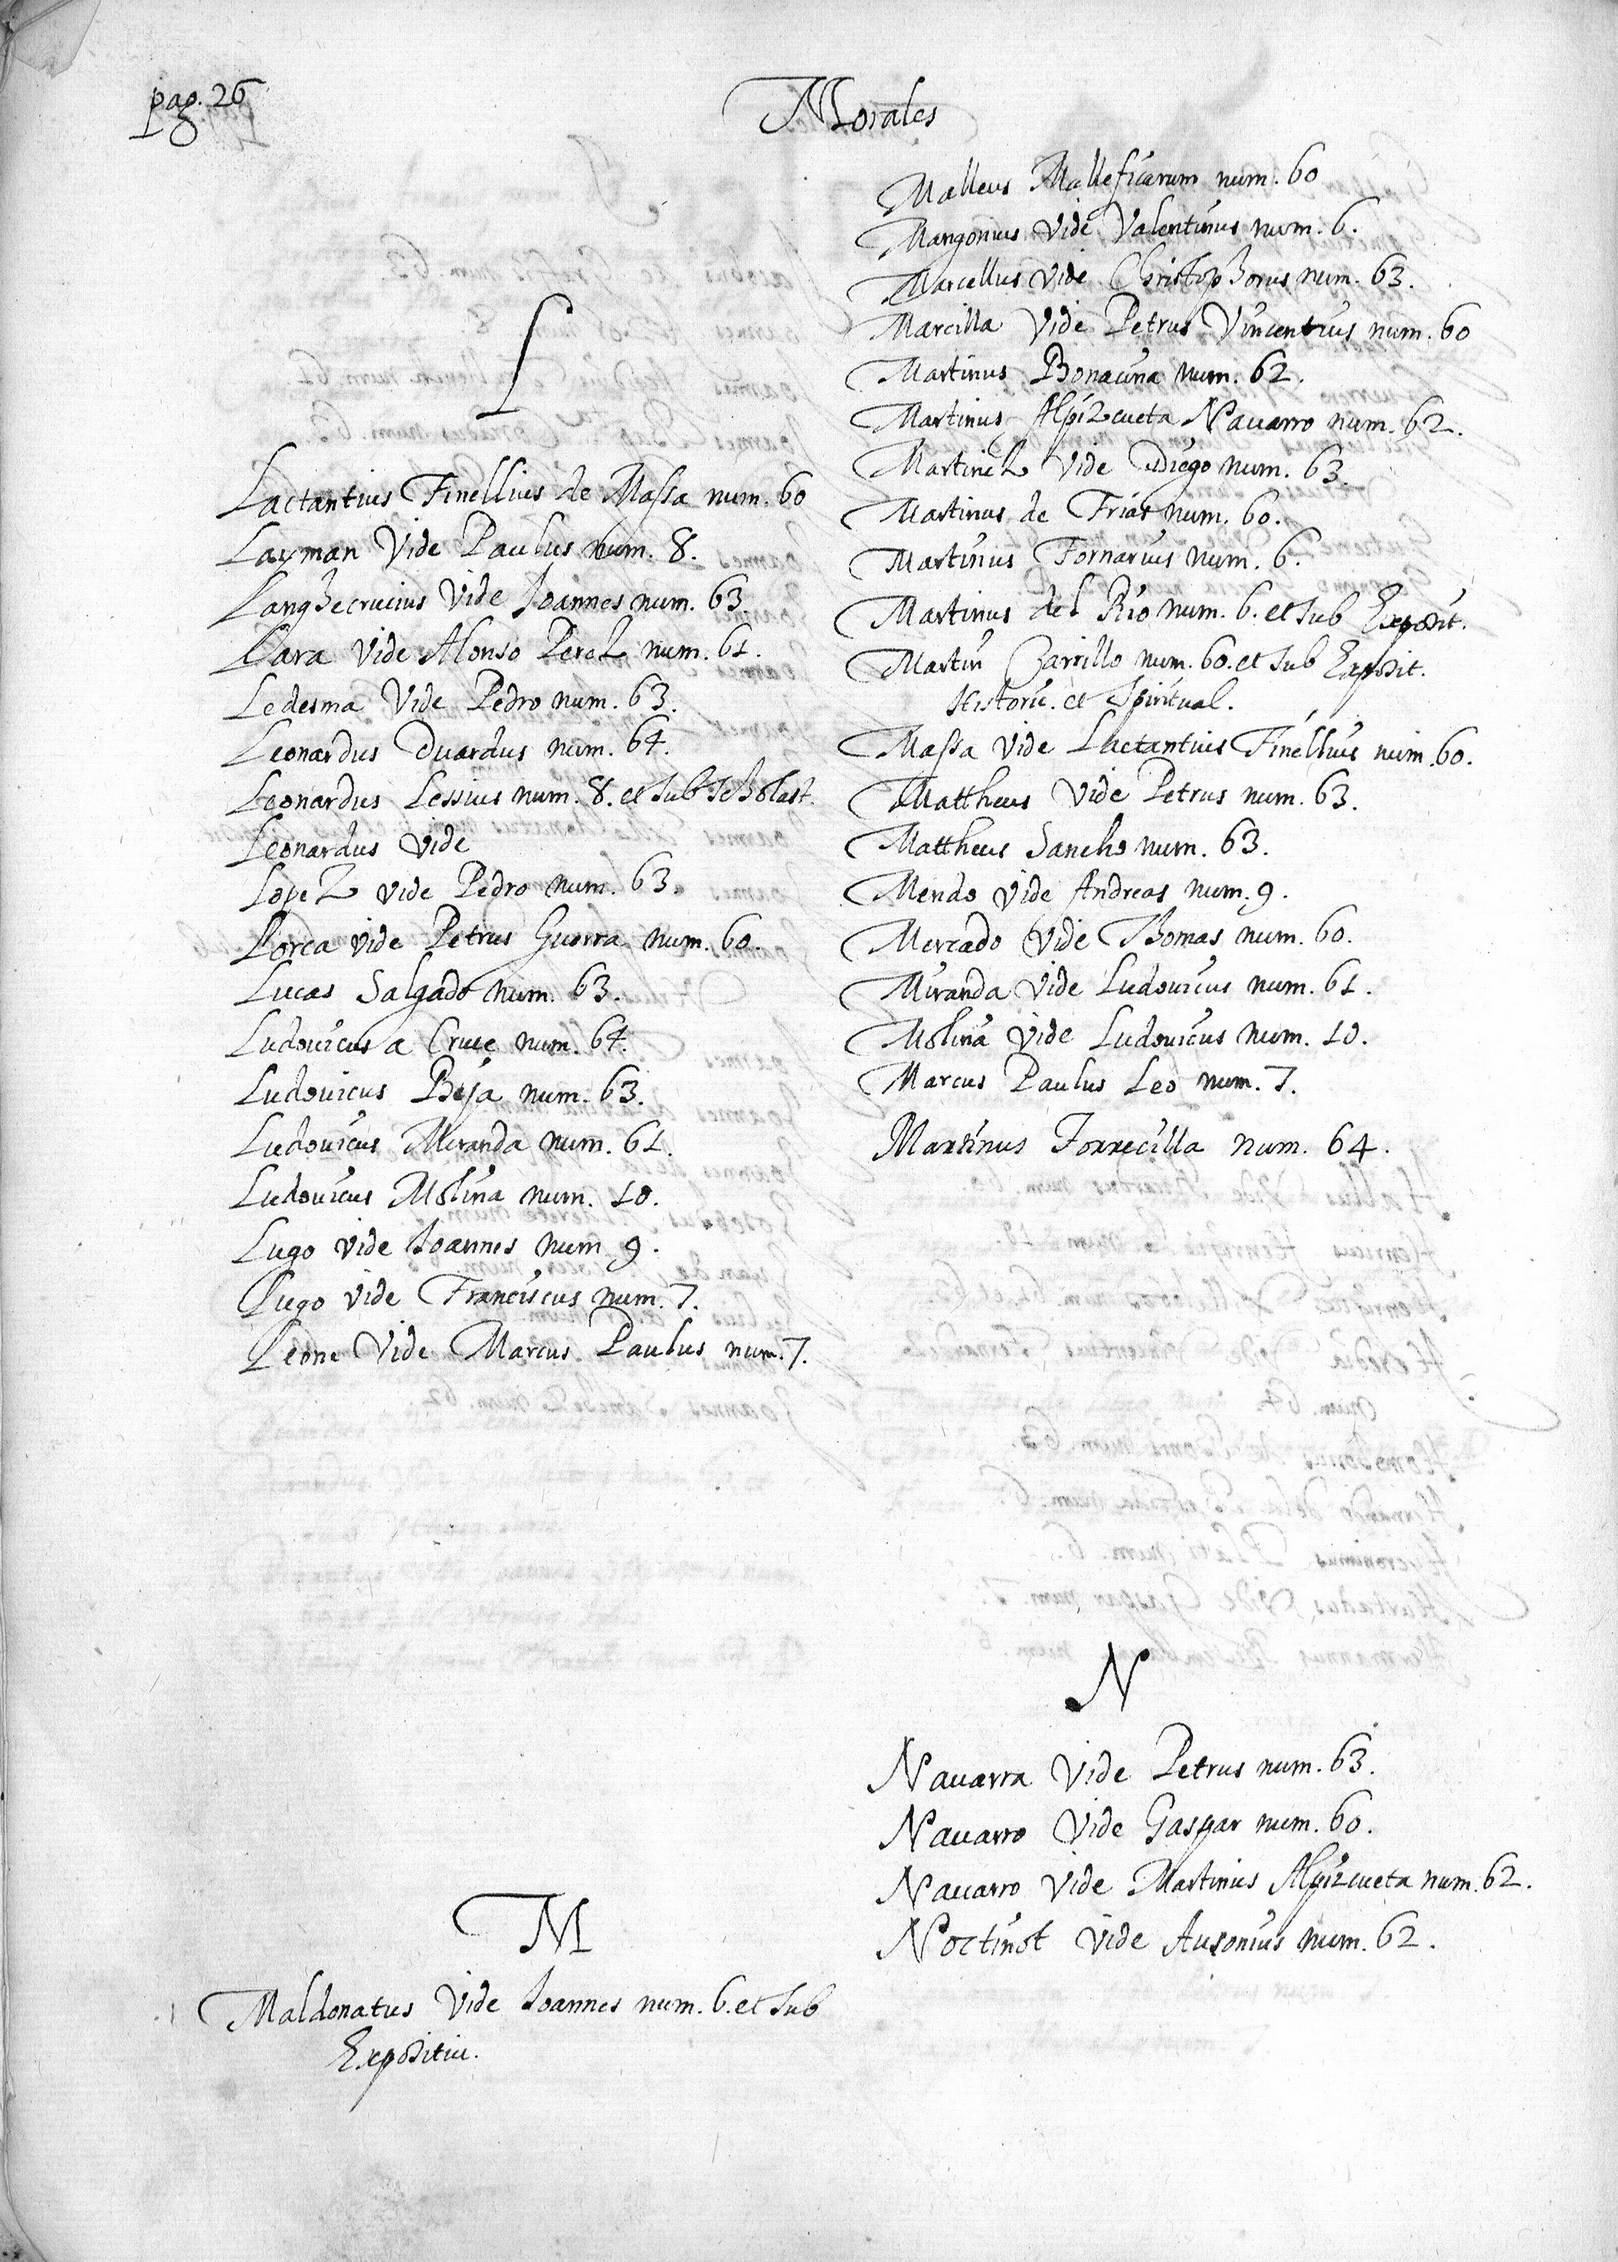 pag. 26
Morales
L
Lactantius Finellius de Massa num. 60
Layman Vide Paulus num. 8.
Langhecrucius Vide Ioannes num. 63.
Lara Vide Alonso Perez num. 61.
Ledesma Vide Pedro num. 63.
Leonardus Duardus num. 64.
Leonardus Lessius num. 8. et sub Scholast.
Leonardus Vide
Lopez vide Pedro num. 63.
Lorca vide Petrus Guerra num. 60.
Lucas Salgado num. 63.
Ludouicus a Cruce num. 64.
Ludouicus Beja num. 63.
Ludouicus Miranda num. 61.
Ludouicus Molina num. 10.
Lugo vide Ioannes num 9.
Lugo vide Franciscus num. 7.
Leone Vide Marcus Paulus num. 7.
M
Maldonatus Vide Ioannes num. 6. et sub
Expositiu.
Malleus Malleficarum num. 60
Mangonius Vide Valentinus num. 6.
Marcellus vide Christophorus num. 63.
Marcilla Vide Petrus Vincentius num. 60
Martinus Bonacina num. 62.
Martinus Alpizcueta Nauarro num. 62.
Martinez Vide Diego num. 63.
Martinus de Frias num. 60.
Martinus Fornarius num. 6.
Martinus del Rio num. 6. et sub Exposit.
Martin Carrillo num. 60. et sub Exposit.
Historic. et Spiritual.
Massa vide Lactantius Finellius num. 60.
Mattheus Vide Petrus num. 63.
Mattheus Sancho num. 63.
Mendo Vide Andreas num. 9.
Mercado Vide Thomas num. 60.
Miranda Vide Ludouicus num. 61.
Molina Vide Ludouicus num. 10.
Marcus Paulus Leo num. 7.
Martinus Torrecilla num. 64.
N
Nauarra Vide Petrus num. 63.
Nauarro Vide Gaspar num. 60.
Nauarro Vide Martinus Alpizcueta num. 62.
Noctinot Vide Ausonius num. 62.